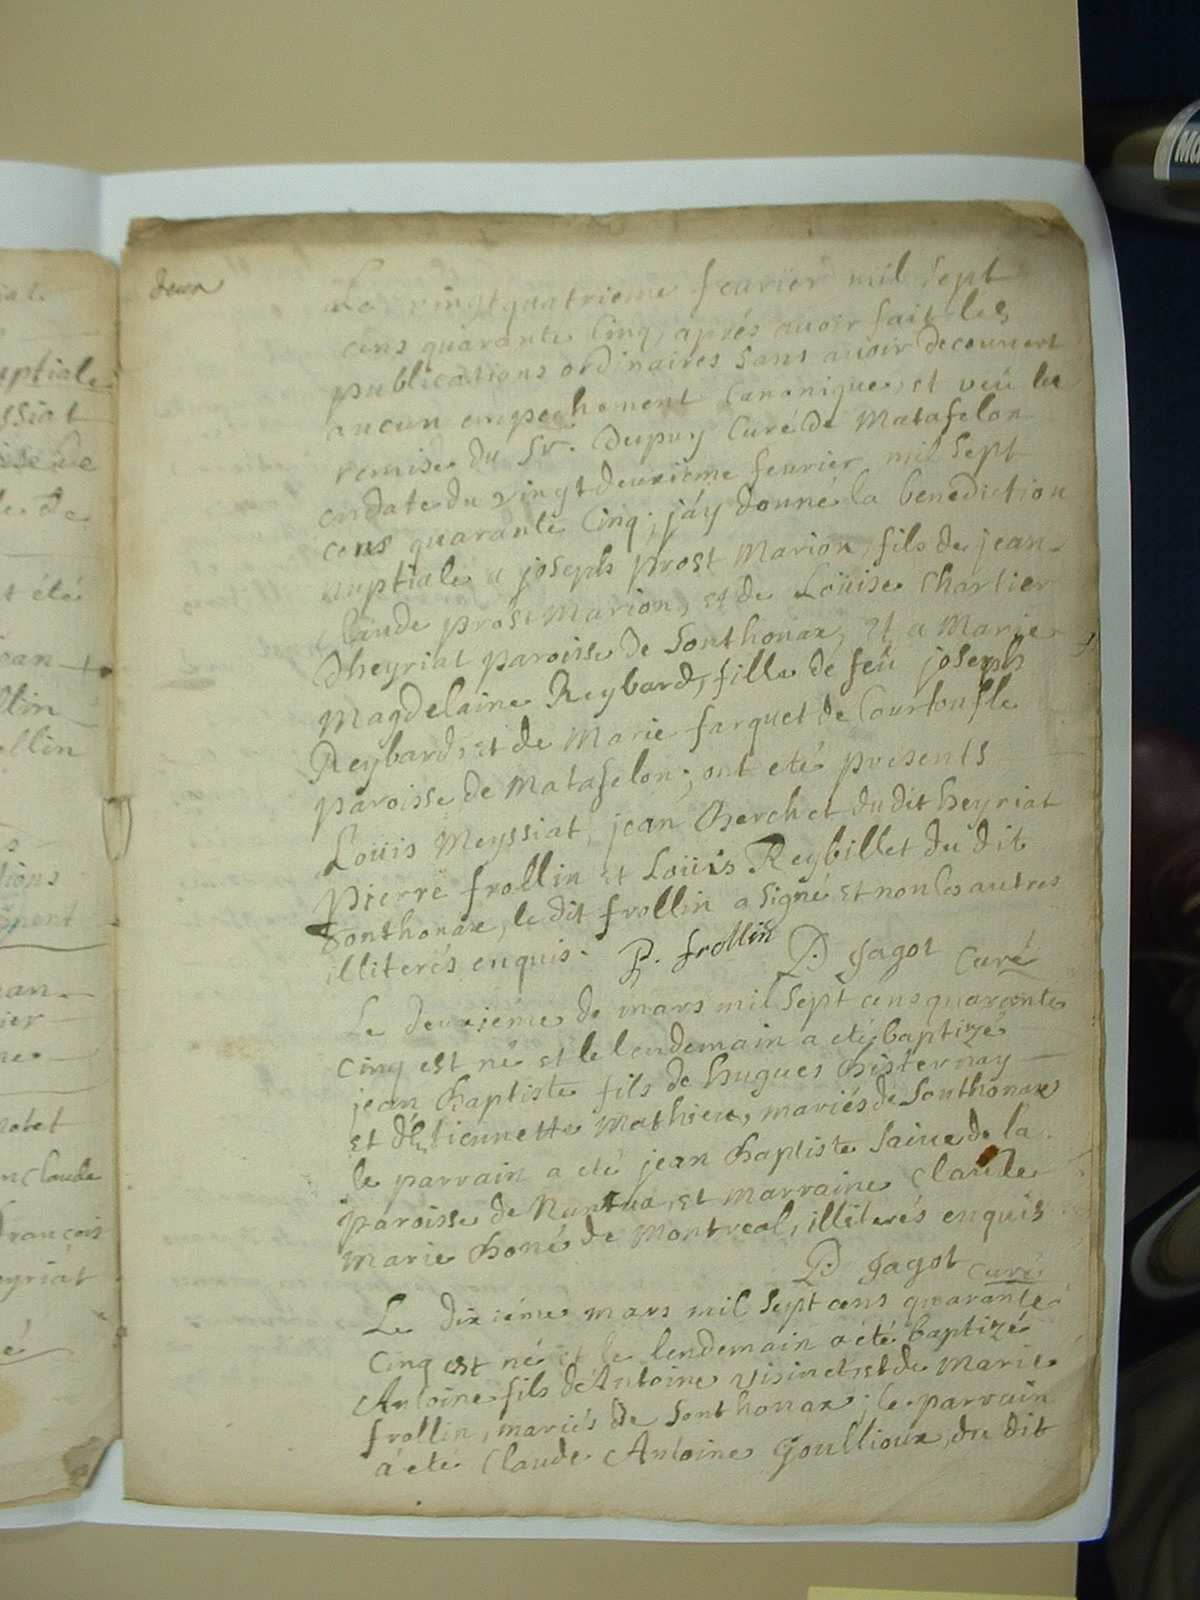 deux
Le vingtquatrieme feurier mil sept
cens quarante Cinq, aprés auoir fait les
publications ordinaires sans auoir decouuert
aucun empechement Canonique, et veü la
remise du Sr. Dupuy Curé de Matafelon
endate du vingtdeuxieme feurier mil sept
cens quarante Cinq; j'áy donné la benediction
nuptiale a joseph prost Marion, fils de jean
Claude prost Marion, et de Loüise Chartier
dheyriat paroisse de Sonthonax, et a Marie
Magdelaine Reybard, fille de feü joseph
Reybard, et de Marie farquet de Courtoufle
paroisse de Matafelon; ont eté presents
Loüis Meyssiat, jean Berchet du dit heyriat
Pierre frollin et Loüis Reybillet du dit
Sonthonax, le dit frollin a signé et non les autres
illiterés enquis. P. frollin D. Jagot Curé
Le deuxieme de mars mil sept cens quarante
Cinq est né et le lendemain a eté baptizé
jean Baptiste fils de hugues Bisternay
et d'Etiennette Mathieu, mariés de Sonthonax
le parrain a eté jean Baptiste de la
paroisse de Nantua, et marraine Claude
Marie Boné de Montreal, illiterés enquis
D. Jagot Curé
Le dixiéme mars mil Sept cens quarante
Cinq est né et le lendemain a été baptizé
Antoine fils de Antoine Visinet, et de Marie
frollin, mariés de Sonthonax; le parrain
a eté Claude Antoine Goullioux, du dit